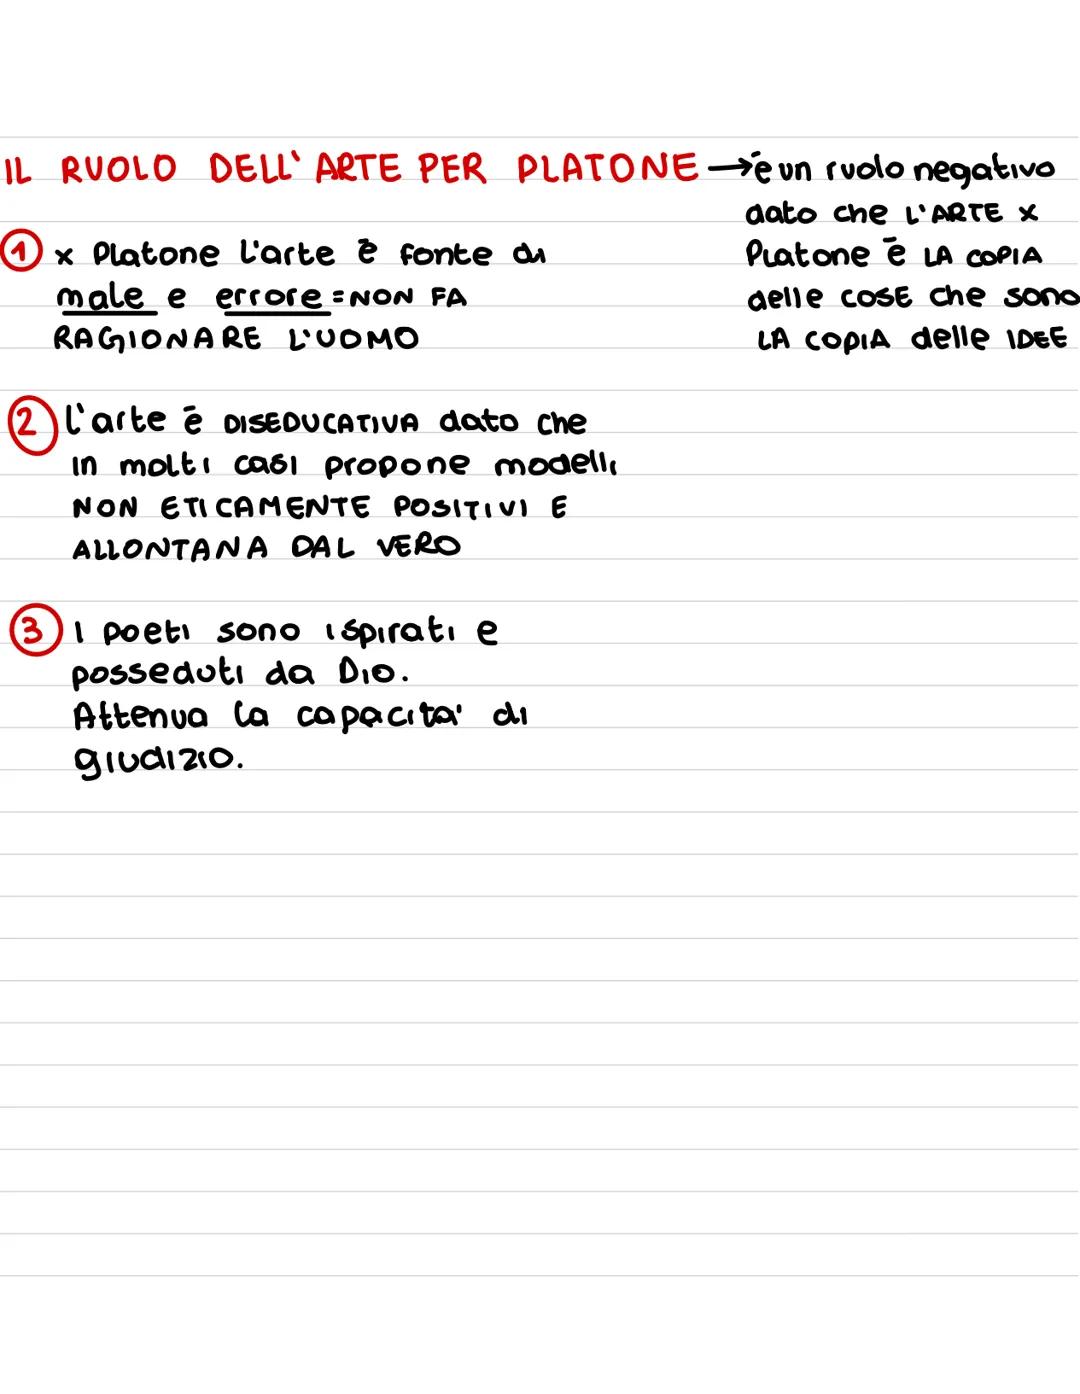 IL RUOLO DELL'ARTE PER PLATONE → è un ruolo negativo
dato che L'ARTE x
Platone è LA COPIA
delle COSE che sono
LA COPIA delle IDEE
1 x Platone l'arte è fonte di
male e errore = NON FA
RAGIONARE L'UOMO
2 l'arte è DISEDUCATIVA dato che
in molti casi propone modelli
NON ETICAMENTE POSITIVI E
ALLONTANA DAL VERO
3 I poeti sono ispirati e
posseduti da Dio.
Attenua la capacita' di
giudizio.